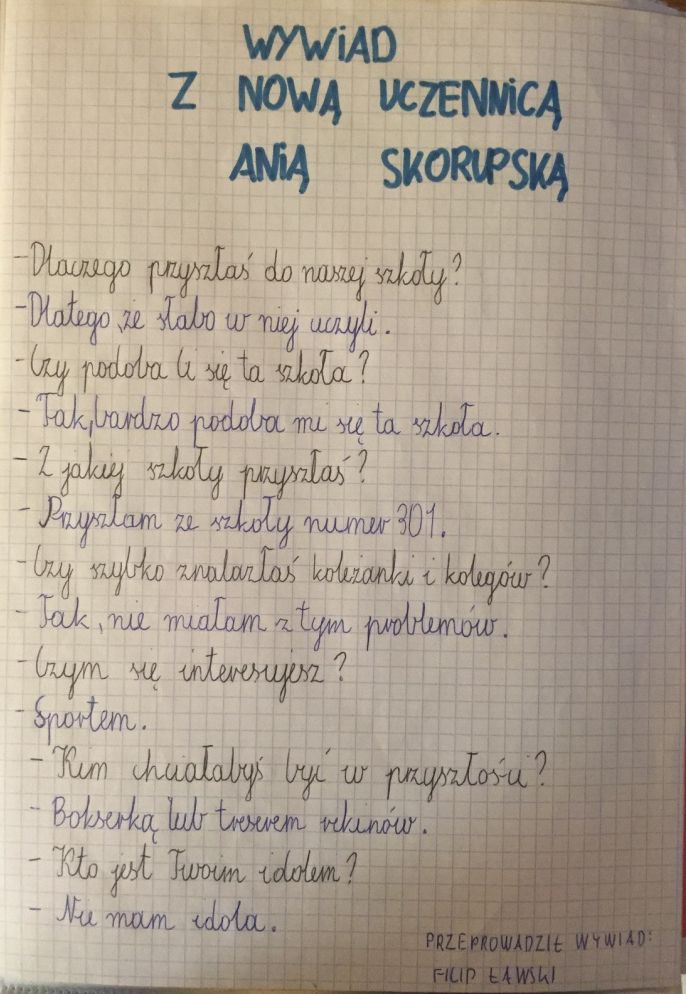 WYWIAD
Z NOWĄ UCZENNICĄ
ANIĄ SKORUPSKĄ
- Dlaczego przyszłaś do naszej szkoły?
- Dlatego, że słabo w niej uczyli.
- Czy podoba Ci się ta szkoła?
- Tak, bardzo podoba mi się ta szkoła.
- Z jakiej szkoły przyszłaś?
- Przyszłam ze szkoły numer 301.
- Czy szybko znalazłaś koleżanki i kolegów?
- Tak, nie miałam z tym problemów.
- Czym się interesujesz?
- Sportem.
- Kim chciałabyś być w przyszłości?
- Bokserką lub treserem rekinów.
- Kto jest Twoim idolem?
- Nie mam idola.
PRZEPROWADZIŁ WYWIAD:
FILIP ŁAWSKI